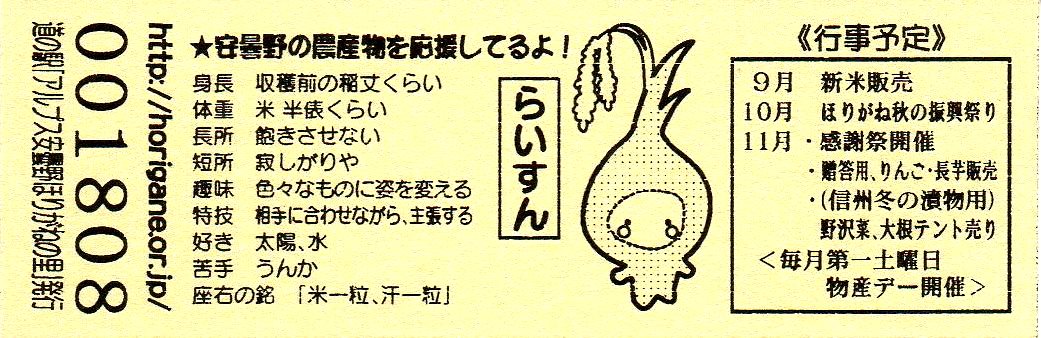 道の駅「アルプス安曇野ほりがねの里」発行
001808
http://horigane.or.jp/
★安曇野の農産物を応援してるよ！
身長 収穫前の稲丈くらい
体重 米 半俵くらい
長所 飽きさせない
短所 寂しがりや
趣味 色々なものに姿を変える
特技 相手に合わせながら、主張する
好き 太陽、水
苦手 うんか
座右の銘 「米一粒、汗一粒」
らいすん
《行事予定》
9月 新米販売
10月 ほりがね秋の振興祭り
11月・感謝祭開催
・贈答用、りんご・長芋販売
・(信州冬の漬物用)
野沢菜、大根テント売り
＜毎月第一土曜日
物産デー開催＞